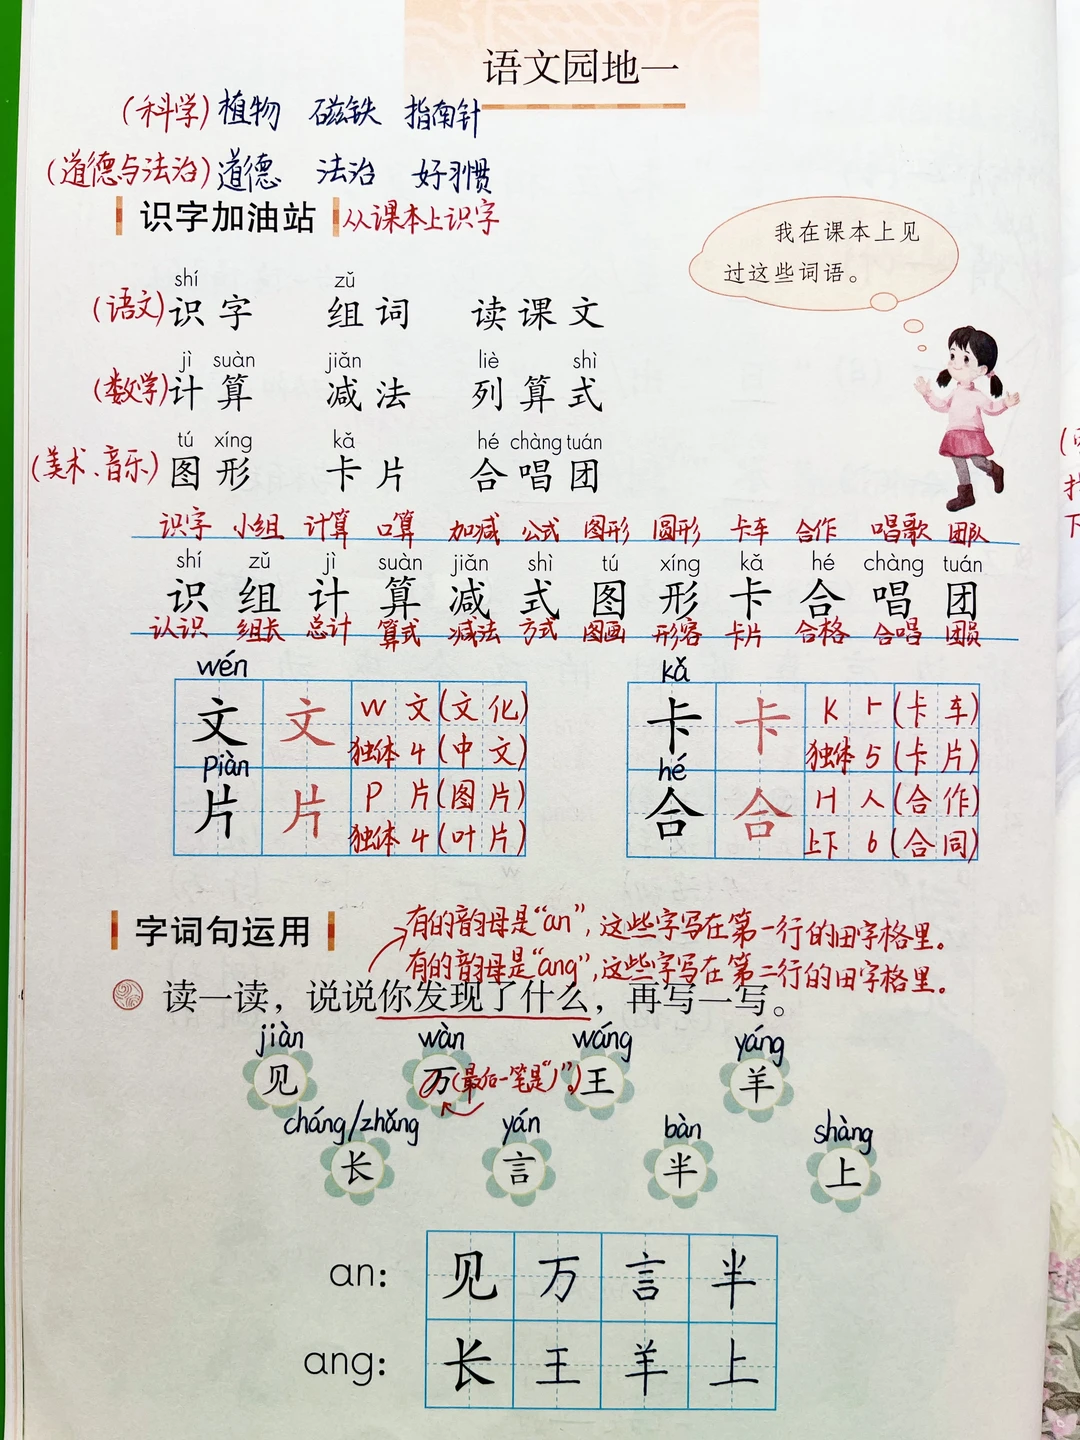 语文园地一
(科学) 植物 磁铁 指南针
(道德与法治) 道德 法治 好习惯
识字加油站 从课本上识字
我在课本上见
过这些词语。
shí zǔ
(语文) 识字 组词 读课文
jì suàn jiǎn liè shì
(数学) 计算 减法 列算式
tú xíng kǎ hé chàng tuán
(美术、音乐) 图形 卡片 合唱团
识字 小组 计算 口算 加减 公式 图形 圆形 卡车 合作 唱歌 团队
shí zǔ jì suàn jiǎn shì tú xíng kǎ hé chàng tuán
识 组 计 算 减 式 图 形 卡 合 唱 团
认识 组长 总计 算式 减法 方式 图画 形容 卡片 合格 合唱 团员
wén kǎ
文 文 W 文 (文化) 卡 卡 K 卜 (卡车)
独体 4 (中文) 独体 5 (卡片)
piàn hé
片 片 P 片 (图片) 合 合 H 人 (合作)
独体 4 (叶片) 上下 6 (合同)
字词句运用
有的韵母是“an”,这些字写在第一行的田字格里。
有的韵母是“ang”,这些字写在第二行的田字格里。
读一读，说说你发现了什么，再写一写。
jiàn wàn wáng yáng
见 万 (最后一笔是“丿”。) 王 羊
cháng/zhǎng yán bàn shàng
长 言 半 上
an: 见 万 言 半
ang: 长 王 羊 上